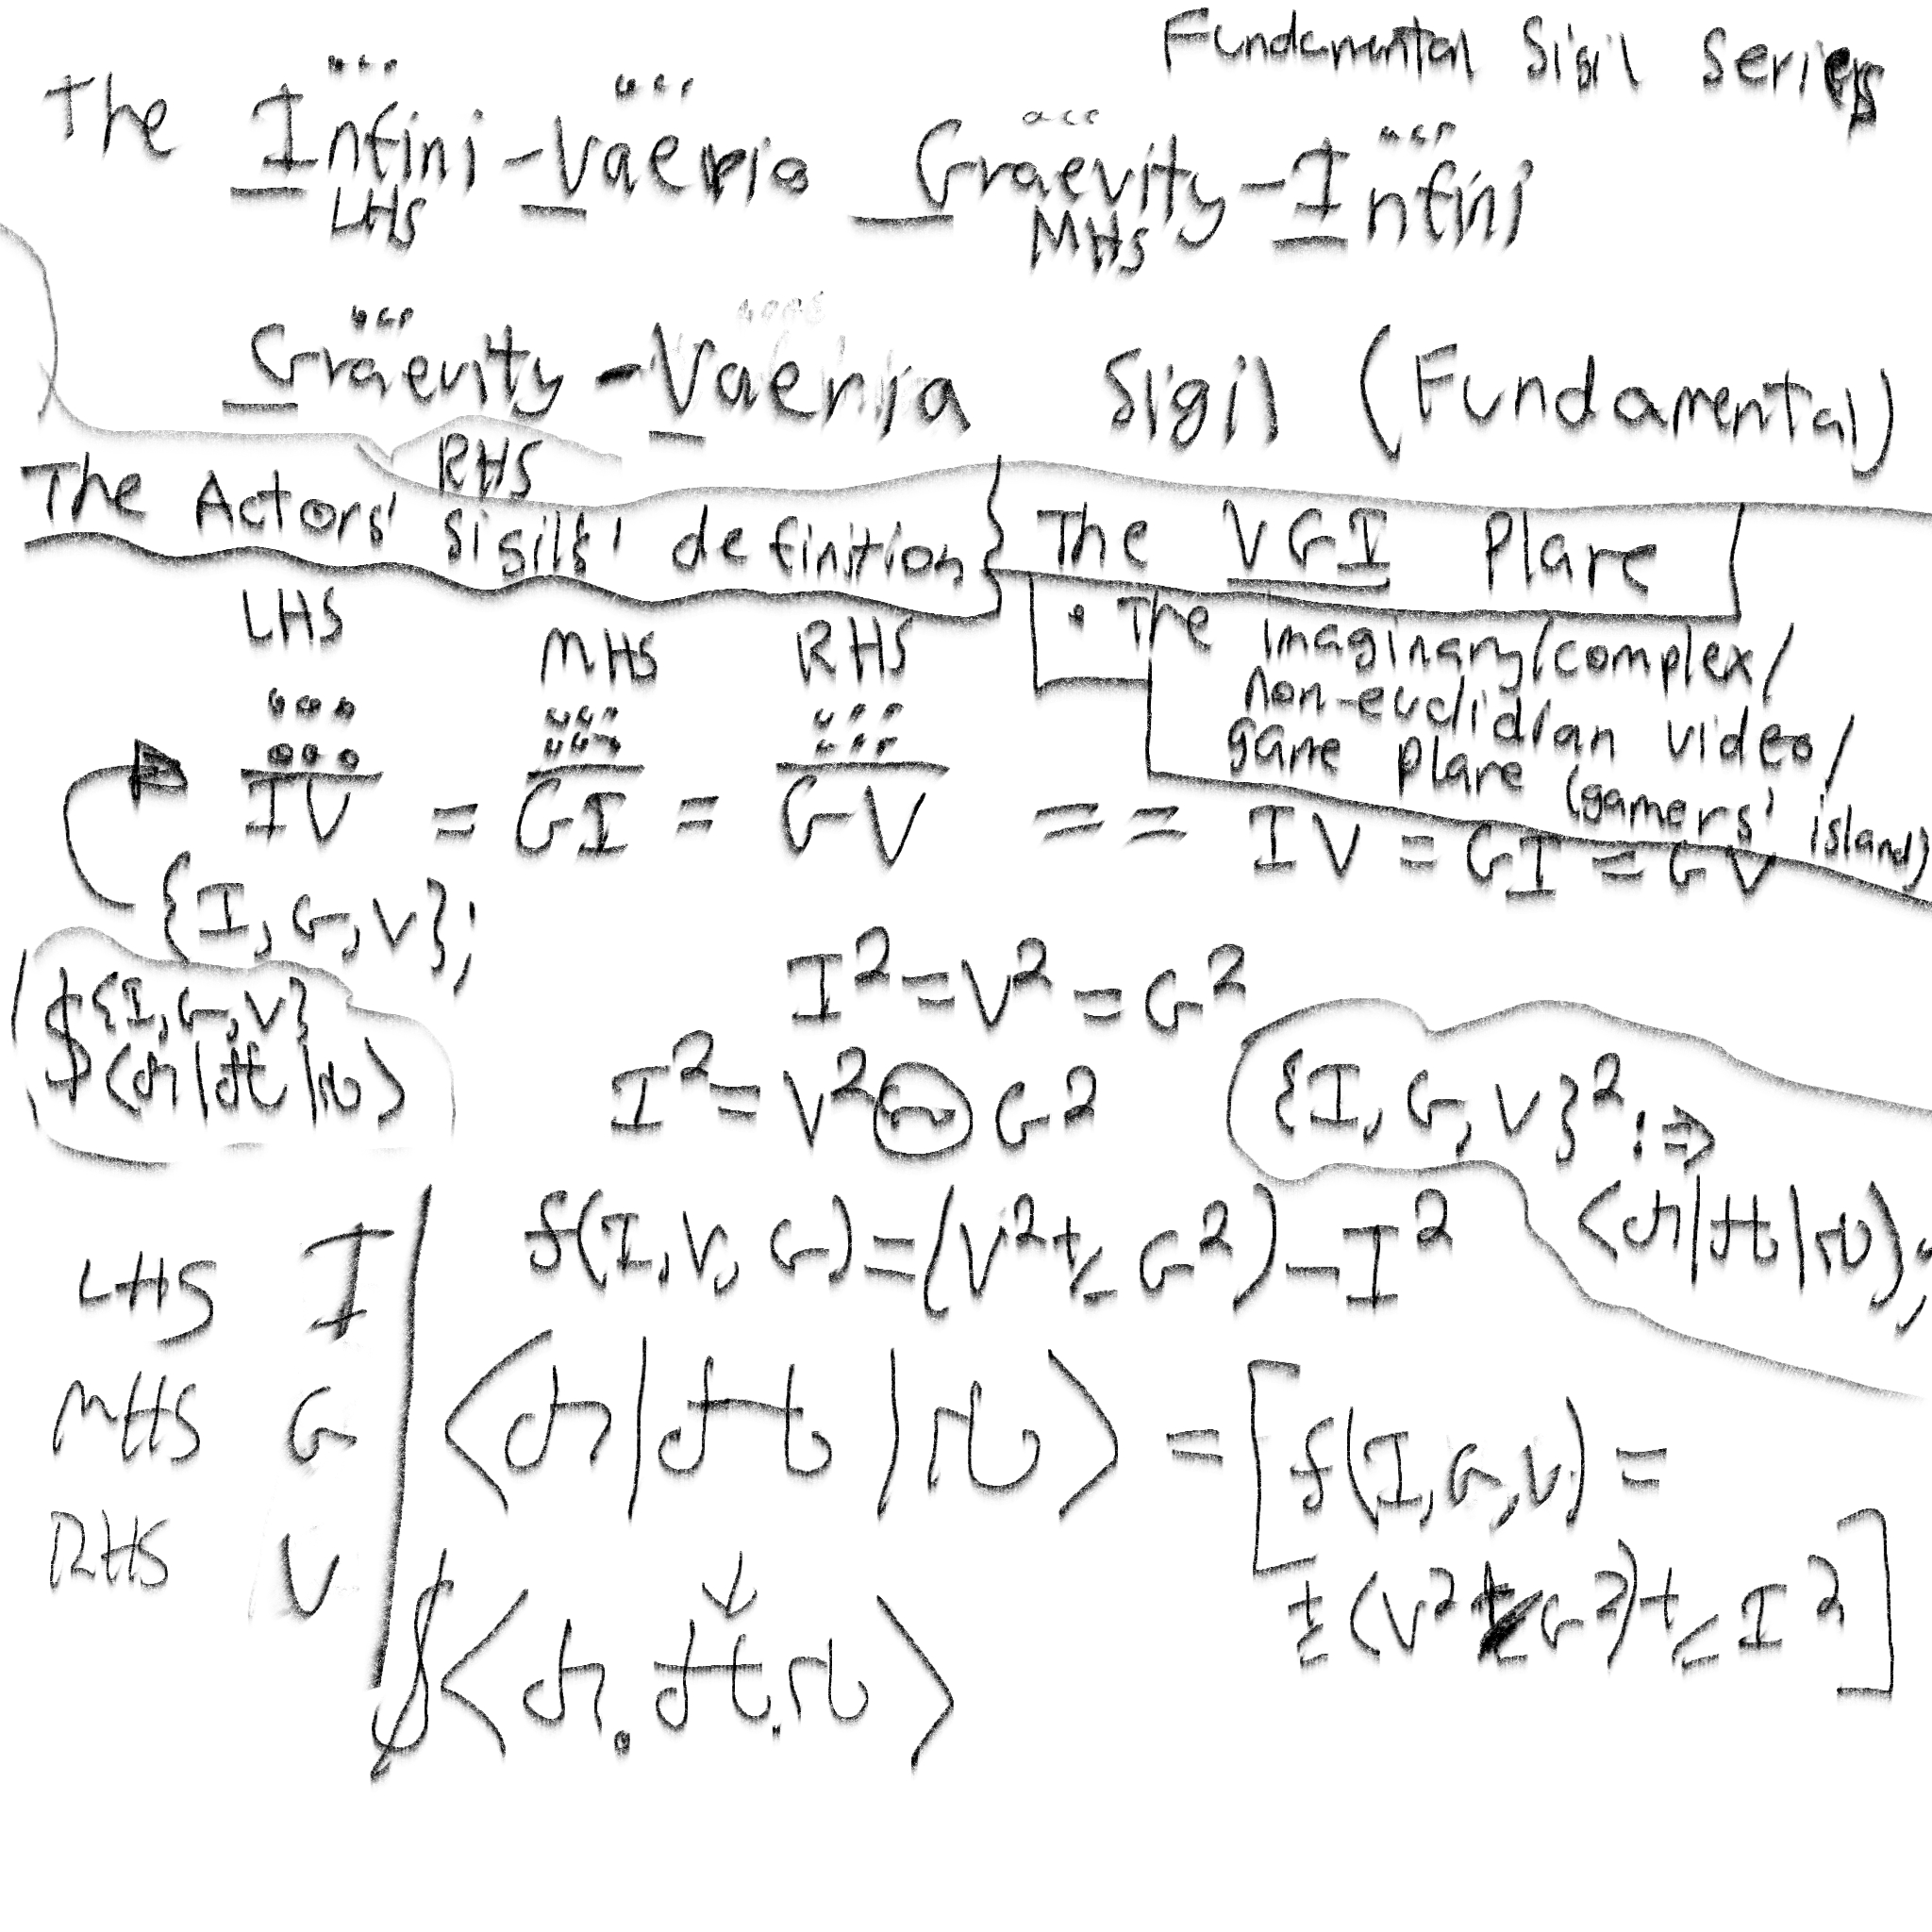 Fundamental Sigil Series
The Infini-Vaeria Graevity-Infini
LHS MHS
Graevity-Vaeria Sigil (Fundamental)
RHS
The Actors' Sigils' definition} The VGI Plane
• The imaginary/complex/
non-euclidian video/
game plane (gamers' island)
LHS MHS RHS
IV = GI = GV == IV = GI = GV
{I, G, V};
I² = V² = G²
${I, G, V}
I² = V² G²
{I, G, V}² :⇒
f(I, V, G) = (V² ± G²) - I²
LHS I
MHS G
RHS V
= [f(I, G, V) =
± (V² ± G²) ± I²]